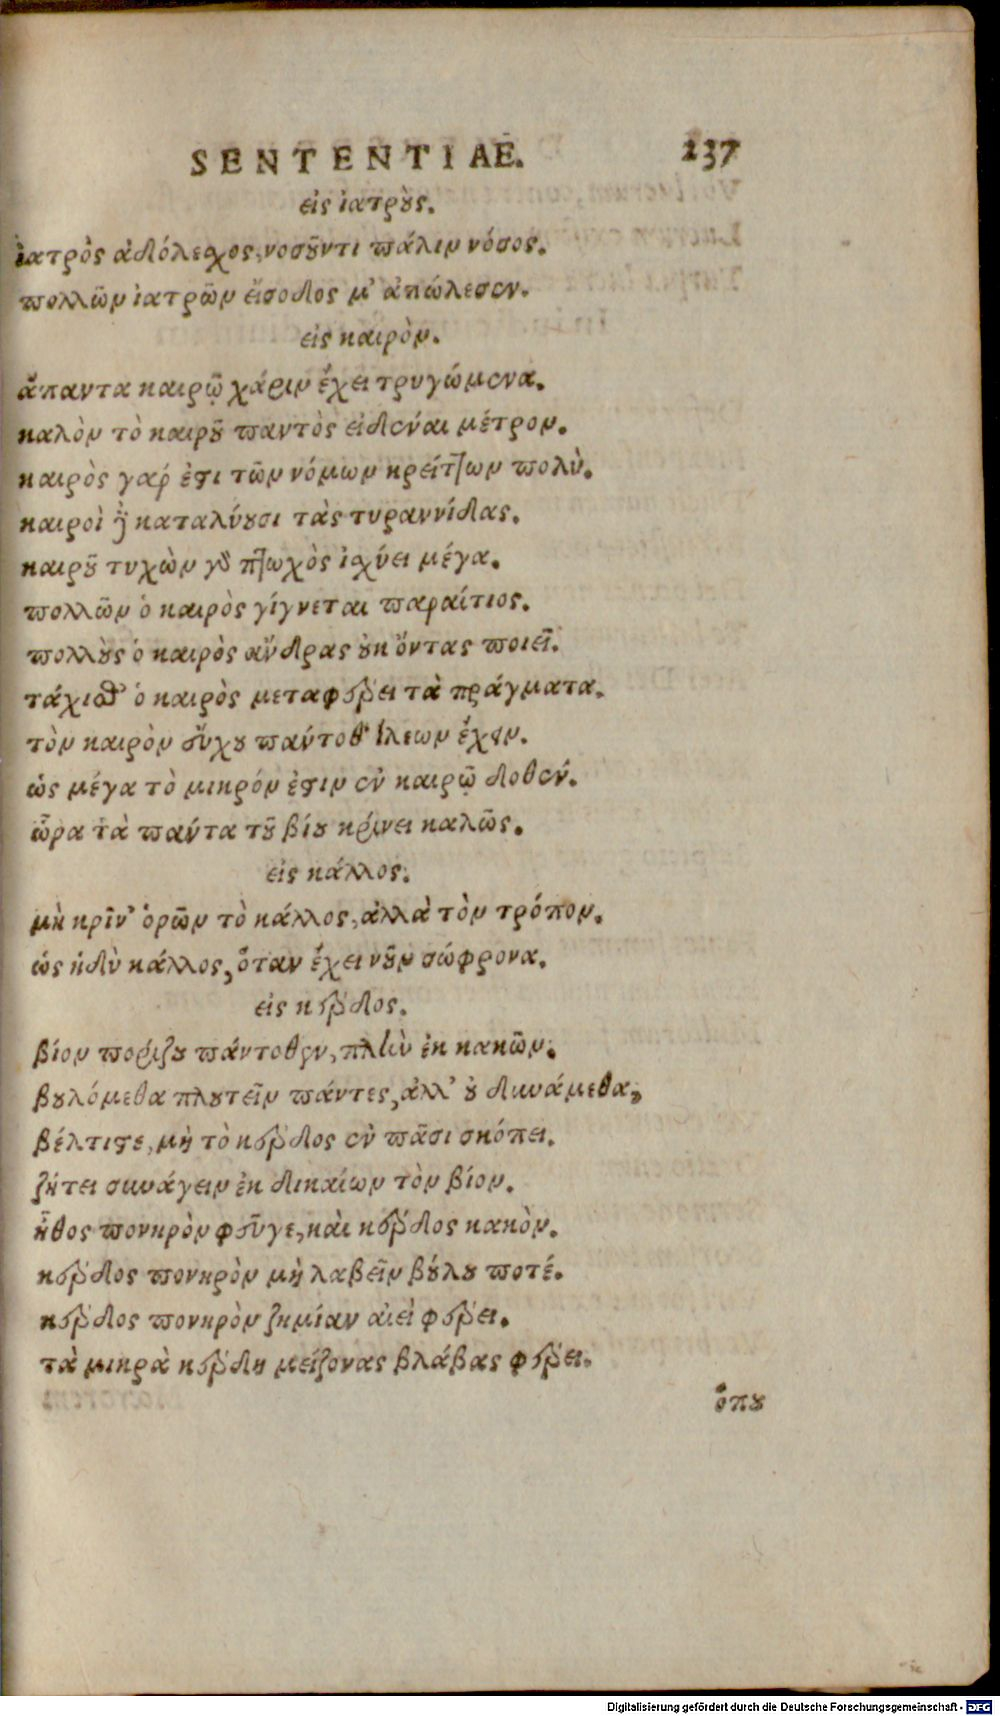 SENTENTIAE. 237
εἰς ἰατρȣ̀ς.
ἰατρὸς ἀδόλεσχος, νοσȣ͂ντι πάλιν νόσος.
πολλῶν ἰατρῶν εἴσοδος μ' ἀπώλεσεν.
εἰς καιρὸν.
ἅπαντα καιρῷ χάριν ἔχει τρυγώμενα.
καλὸν τὸ καιρȣ͂ παντὸς εἰδέναι μέτρον.
καιρὸς γάρ ἐϛι τῶν νόμων κρείττων πολὺ.
καιροὶ δὲ καταλύȣσι τὰς τυραννίδας.
καιρȣ͂ τυχὼν γὰρ πτωχὸς ἰσχύει μέγα.
πολλῶν ὁ καιρὸς γίγνεται παραίτιος.
πολλȣ̀ς ὁ καιρὸς ἄνδρας ȣ̓κ ὄντας ποιεῖ.
τάχισθ' ὁ καιρὸς μεταφέρει τὰ πράγματα.
τὸν καιρὸν εὔχȣ πάντοθ' ἵλεων ἔχειν.
ὡς μέγα τὸ μικρόν ἐϛιν ἐν καιρῷ δοθέν.
ὥρα τὰ πάντα τȣ͂ βίȣ κρίνει καλῶς.
εἰς κάλλος.
μὴ κρῖν' ὁρῶν τὸ κάλλος, ἀλλὰ τὸν τρόπον.
ὡς ἡδὺ κάλλος, ὅταν ἔχει νȣ͂ν σώφρονα.
εἰς κέρδος.
βίον πορίζȣ πάντοθεν, πλὴν ἐκ κακῶν.
βȣλόμεθα πλȣτεῖν πάντες, ἀλλ' ȣ̓ δυνάμεθα.
βέλτιϛε, μὴ τὸ κέρδος ἐν πᾶσι σκόπει.
ζήτει συνάγειν ἐκ δικαίων τὸν βίον.
ἦθος πονηρὸν φεῦγε, καὶ κέρδος κακὸν.
κέρδος πονηρὸν μὴ λαβεῖν βȣ́λȣ ποτέ.
κέρδος πονηρὸν ζημίαν αἰεὶ φέρει.
τὰ μικρὰ κέρδη μείζονας βλάβας φέρει.
ὅπȣ
Digitalisierung gefördert durch die Deutsche Forschungsgemeinschaft - DFG